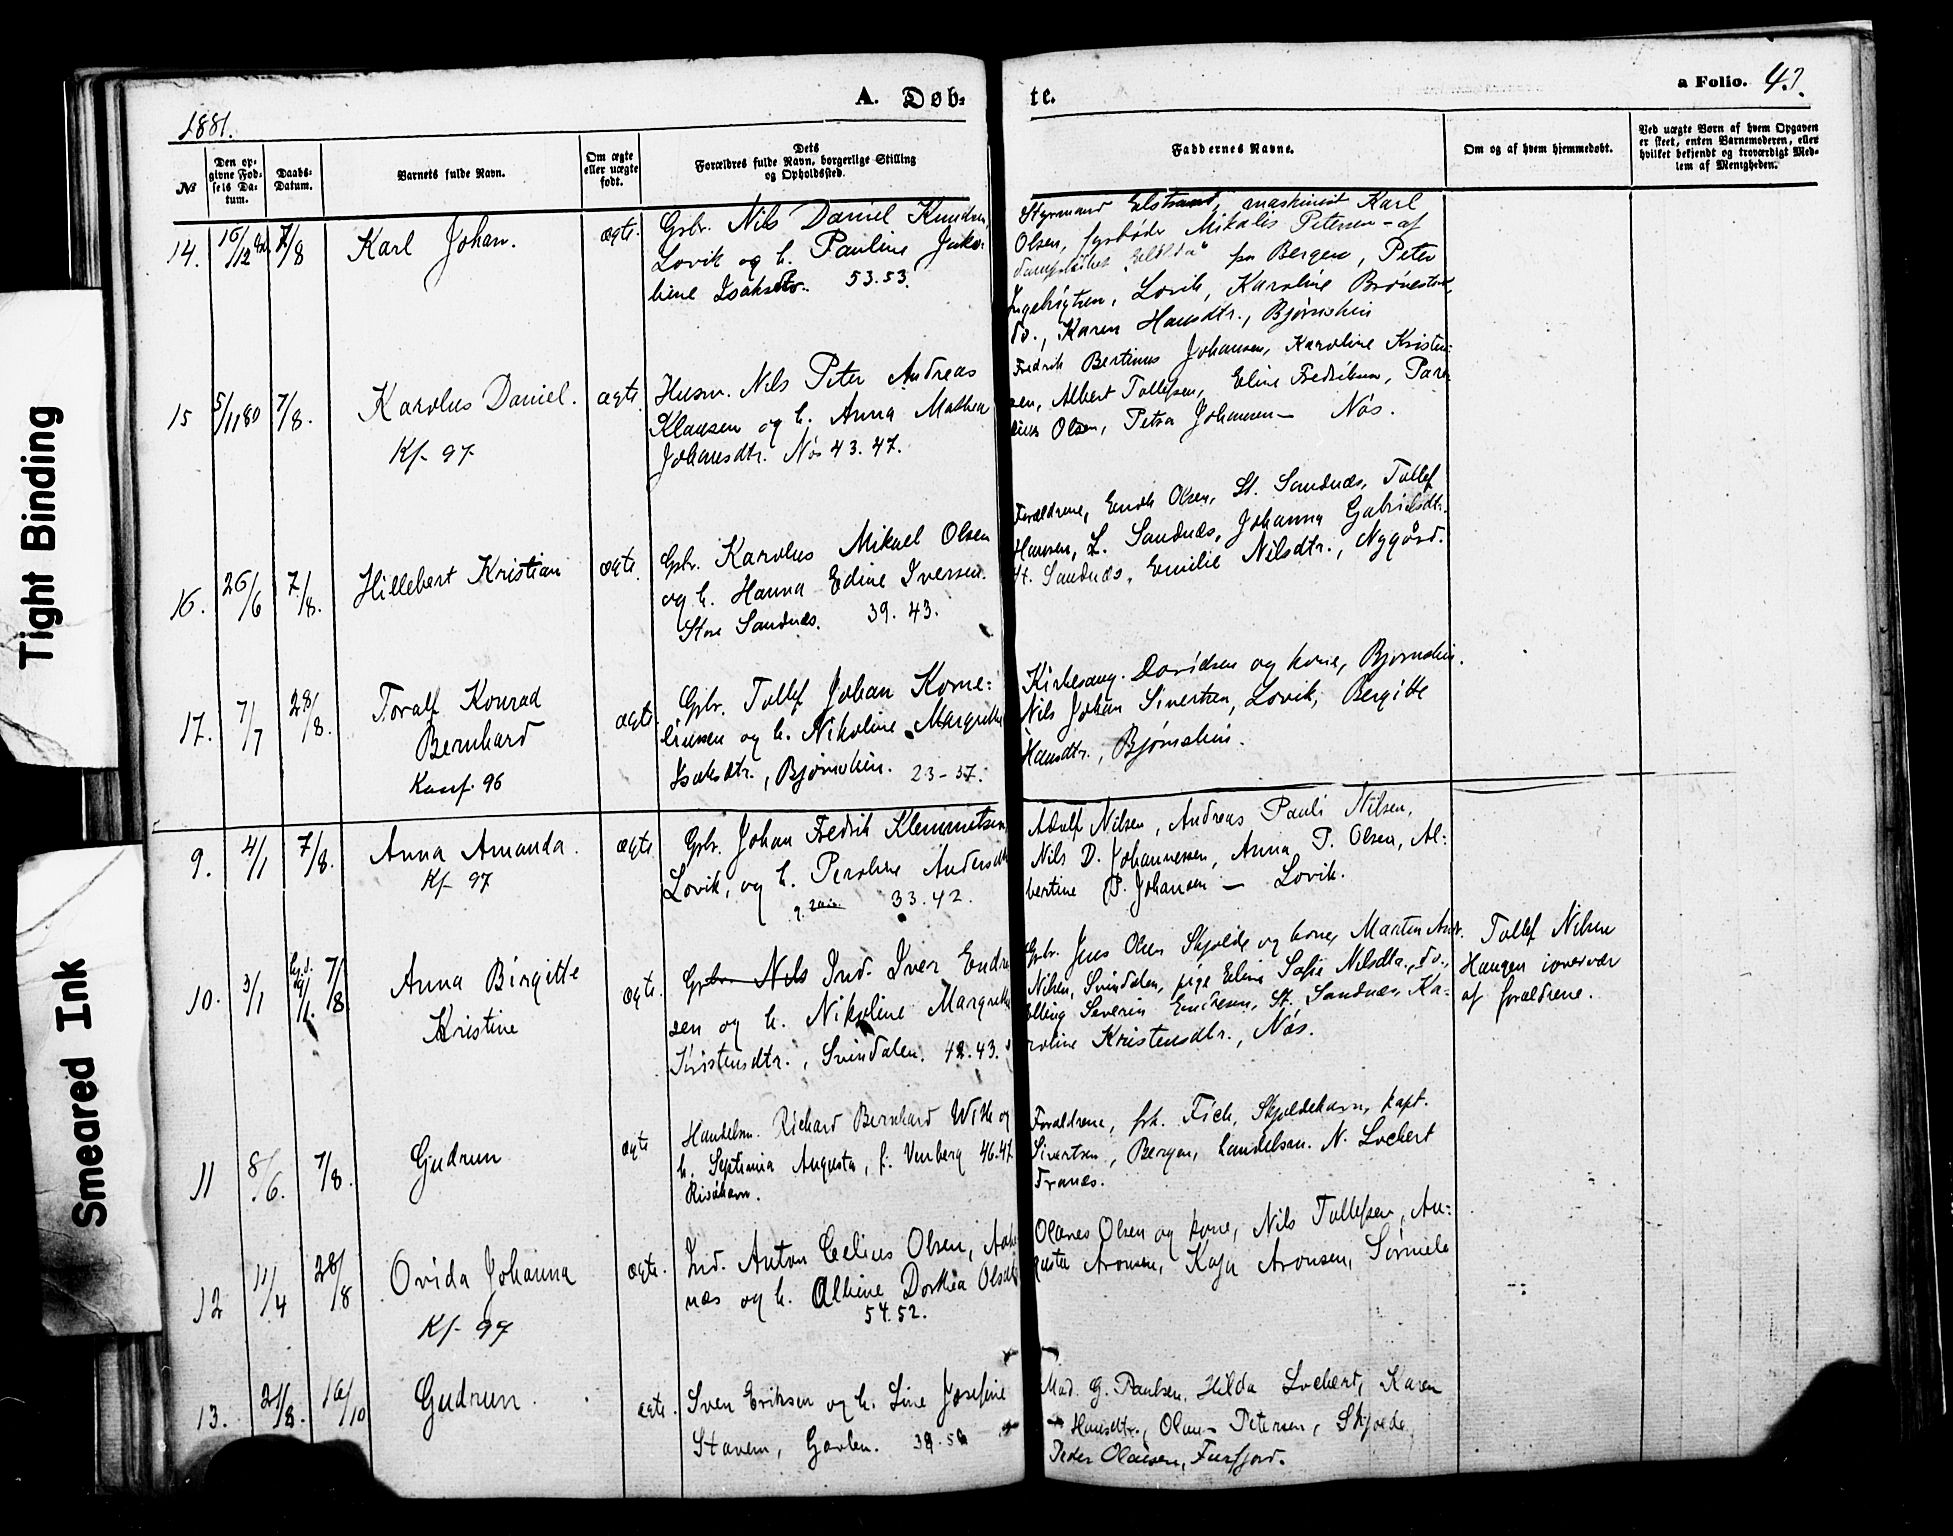 Tight Binding
Smeared Ink
1881.
A. Døb-
te.
a Folio. 43.
№
Den op-
givne Fød-
sels Da-
tum.
Daabs-
Datum.
Barnets fulde Navn.
Om ægte
eller uægte
født.
Dets
Forældres fulde Navn, borgerlige Stilling
og Opholdssted.
Faddernes Navne.
Om og af hvem hjemmedøbt.
Ved uægte Børn af hvem Opgaven
er skeet, enten Barnemoderen, eller
hvilket bekjendt og troværdigt Med-
lem af Menigheden.
14. 7/8 Karl Johan. ægte.
Gbr. Nils Daniel
Lovik og h. Pauline
53.53.
Styrmand Elstrand, maskinist Karl
Olsen, fyrbøder Mikalis Petersen - af
fra Bergen, Peter
Lovik, Karoline
do., Karen Hansdtr., Bjørnskin
15 5/11 80 7/8. Karolus Daniel. ægte.
Kf. 97
Husm. Nils Peter Andreas
Klausen og h. Anna Mathea
Johansdtr. Nøs 43.47.
Fredrik Bertinus Johansen, Karoline Kristen-
sen, Albert Tollefsen, Eline Fredriksen, Pare-
lius Olsen, Petra Johansen - Nøs.
16. 26/6 7/8. Hillebert Kristian ægte.
Gbr. Karolus Mikael Olsen
og h. Hanna Edine Iversen.
Store Sandnæs. 39. 43.
Forældrene, Enok Olsen, St. Sandnæs, Tollef
Hansen, L. Sandnæs, Johanna Gabrielsdtr.
St. Sandnæs, Emilie Nilsdtr., Nygård.
17. 7/7 28/8. Toralf Konrad
Bernhard
Konf. 96
ægte
Gbr. Tollef Johan Korne-
liussen og h. Nikoline Margrethe
Isaksdtr., Bjørnskin. 23-37.
Kirkesang. Davidsen og kone, Bjørnskin.
Nils Johan Sivertsen, Lovik, Bergitte
Hansdtr., Bjørnskin.
9. 4/1 7/8. Anna Amanda. ægte
Kf. 97
Gbr. Johan Fredrik Klemmetsen
Lovik, og h. Peroline Andersdtr
33.42.
Adolf Nilsen, Andreas Pauli Nilsen,
Nils D. Johannessen, Anna P. Olsen, Al-
bertine P. Johansen - Lovik.
10. 3/1 7/8. Anna Birgitte
Kristine
ægte.
Gbr. Nils Ind. Iver Endre
sen og h. Nikoline Margrethe
Kristensdtr., Svindalen. 42.43.
Gbr. Jens Olsen Skjolde og kone, Martin Andr.
Nilsen, Svindalen, pige Eline Sofie Nilsdtr., do.,
Elling Severin Endresen, St. Sandnæs, Ka-
roline Kristensdtr., Nøs.
Tollef Nilsen
Haugen
af forældrene.
11 8/6. 7/8. Gudrun ægte
Handelsm. Richard Bernhard With og
h. Septimia Augusta, f. 46.47
Risøhavn.
Forældrene, frk. Fick, Skjoldehavn, kapt.
Sivertsen, Bergen, handelsm. N. Lockert
Franæs.
12 11/4 28/8 Ovida Johanna ægte.
Kf. 97
Ind. Anton Celius Olsen,
næs og h. Albine Dorthea Olsdtr
54.52.
Olaves Olsen og kone, Nils Tollefsen, Au-
gusta Aronsen, Kaja Aronsen, Sørmela
13. 21/8. 16/10 Gudrun. ægte.
Sven Eriksen og h. Line Josefine
Stavem, Gavlen.
Mad. G. Paulsen, Hilda Lockert, Karen
Hansdtr., Petersen, Skjolde
Peder Olaisen, Furfjord.